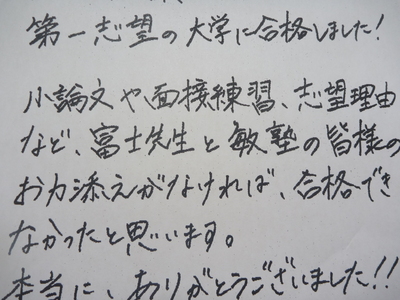 第一志望の大学に合格しました!
小論文や面接練習、志望理由
など、富士先生と敏塾の皆様の
お力添えがなければ、合格でき
なかったと思います。
本当に、ありがとうございました!!